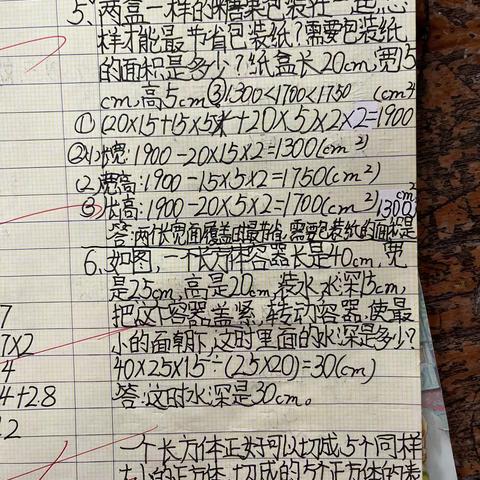 5、两盒一样的糖果包装在一起,怎
样才能最节省包装纸?需要包装纸
的面积是多少?纸盒长20cm,宽15
cm,高5cm ③1300<1700<1750 (cm²
①(20×15+15×5+20×5)×2×2=1900
②(1)长宽:1900-20×15×2=1300(cm²)
(2)宽高:1900-15×5×2=1750(cm²)
③长高:1900-20×5×2=1700(cm²) 1300cm²
答:两个长宽面覆盖时最节省,需要包装纸的面积是
6、如图,一个长方体容器长是40cm,宽
是25cm,高是20cm,装水,水深15cm,
把这个容器盖紧,转动容器,使最
小的面朝下,这时里面的水深是多少?
40×25×15÷(25×20)=30(cm)
答:这时水深是30cm。
一个长方体正好可以切成5个同样
大小的正方体,切成的5个正方体的表
7
7×2
4
4+2.8
2